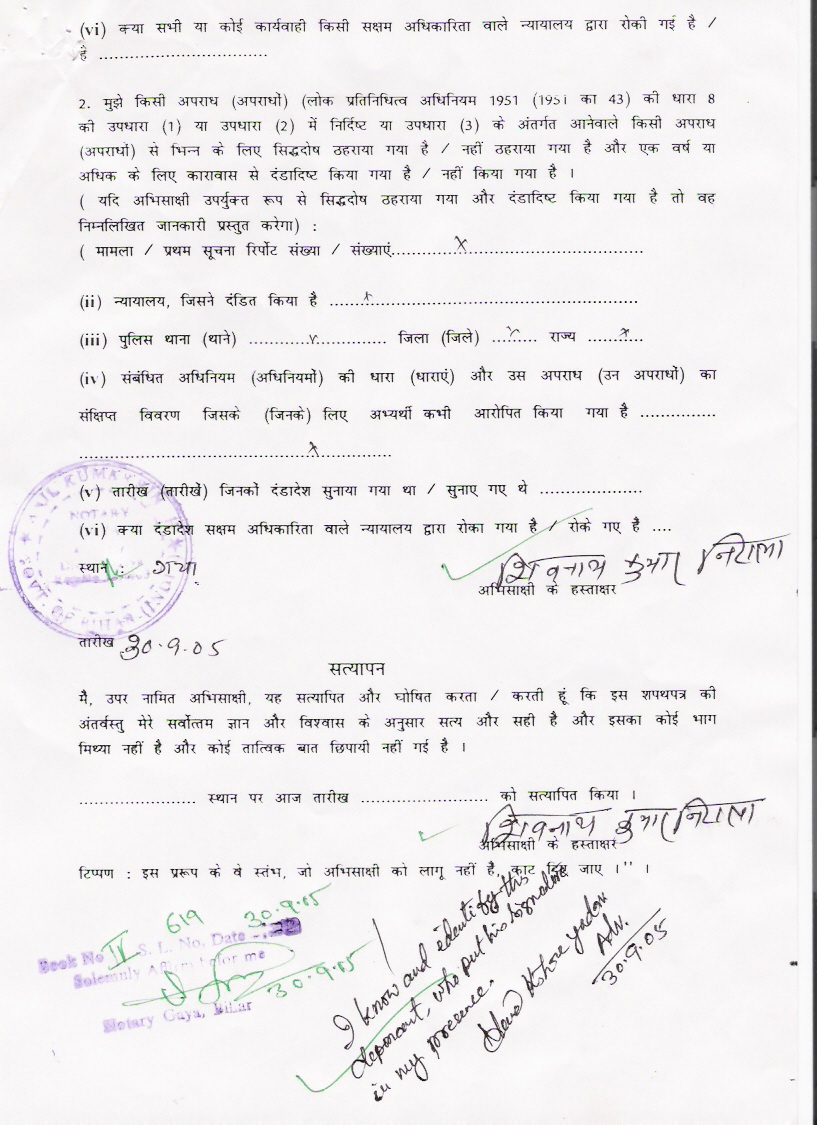 (vi) क्या सभी या कोई कार्यवाही किसी सक्षम अधिकारिता वाले न्यायालय द्वारा रोकी गई है /
है ................................
2. मुझे किसी अपराध (अपराधों) (लोक प्रतिनिधित्व अधिनियम 1951 (1951 का 43) की धारा 8
की उपधारा (1) या उपधारा (2) में निर्दिष्ट या उपधारा (3) के अंतर्गत आनेवाले किसी अपराध
(अपराधों) से भिन्न के लिए सिद्धदोष ठहराया गया है / नहीं ठहराया गया है और एक वर्ष या
अधिक के लिए कारावास से दंडादिष्ट किया गया है / नहीं किया गया है ।
( यदि अभिसाक्षी उपर्युक्त रूप से सिद्धदोष ठहराया गया और दंडादिष्ट किया गया है तो वह
निम्नलिखित जानकारी प्रस्तुत करेगा) :
( मामला / प्रथम सूचना रिर्पोट संख्या / संख्याएं..............x...................................
(ii) न्यायालय, जिसने दंडित किया है .......x......................................................
(iii) पुलिस थाना (थाने) .............x............... जिला (जिले) ....x..... राज्य .......x....
(iv) संबंधित अधिनियम (अधिनियमों) की धारा (धाराएं) और उस अपराध (उन अपराधों) का
संक्षिप्त विवरण जिसके (जिनके) लिए अभ्यर्थी कभी आरोपित किया गया है ................
..................................................x.................
(v) तारीख (तारीखें) जिनकों दंडादेश सुनाया गया था / सुनाए गए थे .....................
(vi) क्या दंडादेश सक्षम अधिकारिता वाले न्यायालय द्वारा रोका गया है / रोके गए है ....
स्थान : गया
शिवनाथ कुमार निराला
अभिसाक्षी के हस्ताक्षर
NOTARY
तारीख 30.9.05
सत्यापन
मै, उपर नामित अभिसाक्षी, यह सत्यापित और घोषित करता / करती हूं कि इस शपथपत्र की
अंतर्वस्तु मेरे सर्वोत्तम ज्ञान और विश्वास के अनुसार सत्य और सही है और इसका कोई भाग
मिथ्या नहीं है और कोई तात्विक बात छिपायी नहीं गई है ।
....................... स्थान पर आज तारीख ......................... को सत्यापित किया ।
शिवनाथ कुमार निराला
अभिसाक्षी के हस्ताक्षर
टिप्पण : इस प्ररूप के वे स्तंभ, जो अभिसाक्षी को लागू नहीं है, काट दिए जाए ।" ।
619 30.9.05
Book No IV S. L. No. Date
Solemnly Affirmed before me
30.9.05
Notary Gaya, Bihar
I know and edentify the
deponent, who put his signature
in my presence.
Kishore yadav
Adv.
30.9.05